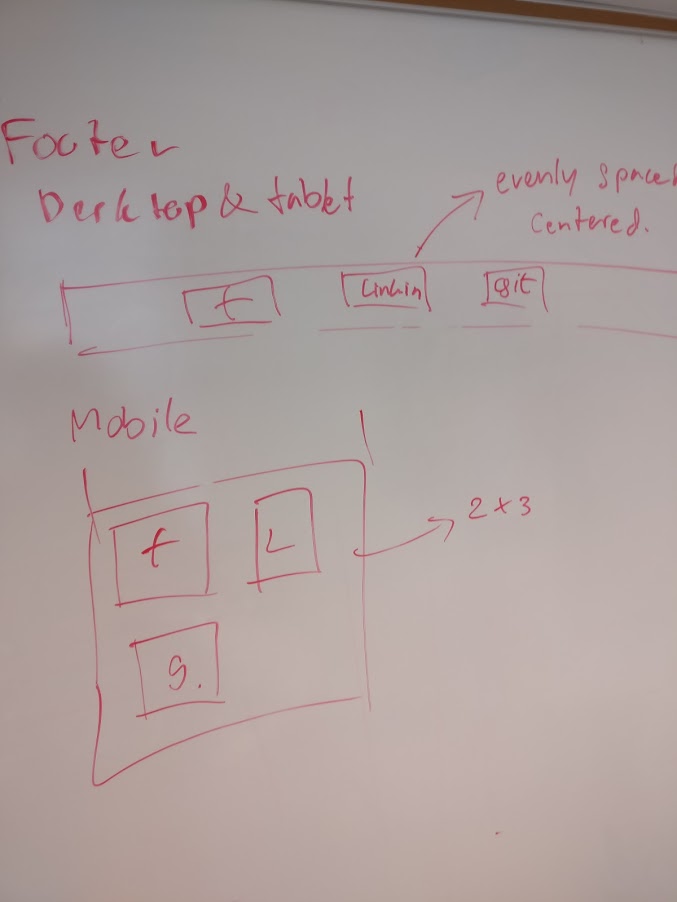 Footer
Desktop & tablet
evenly space
centered.
t
Linkin
git
Mobile
t
L
2 x 3
g.